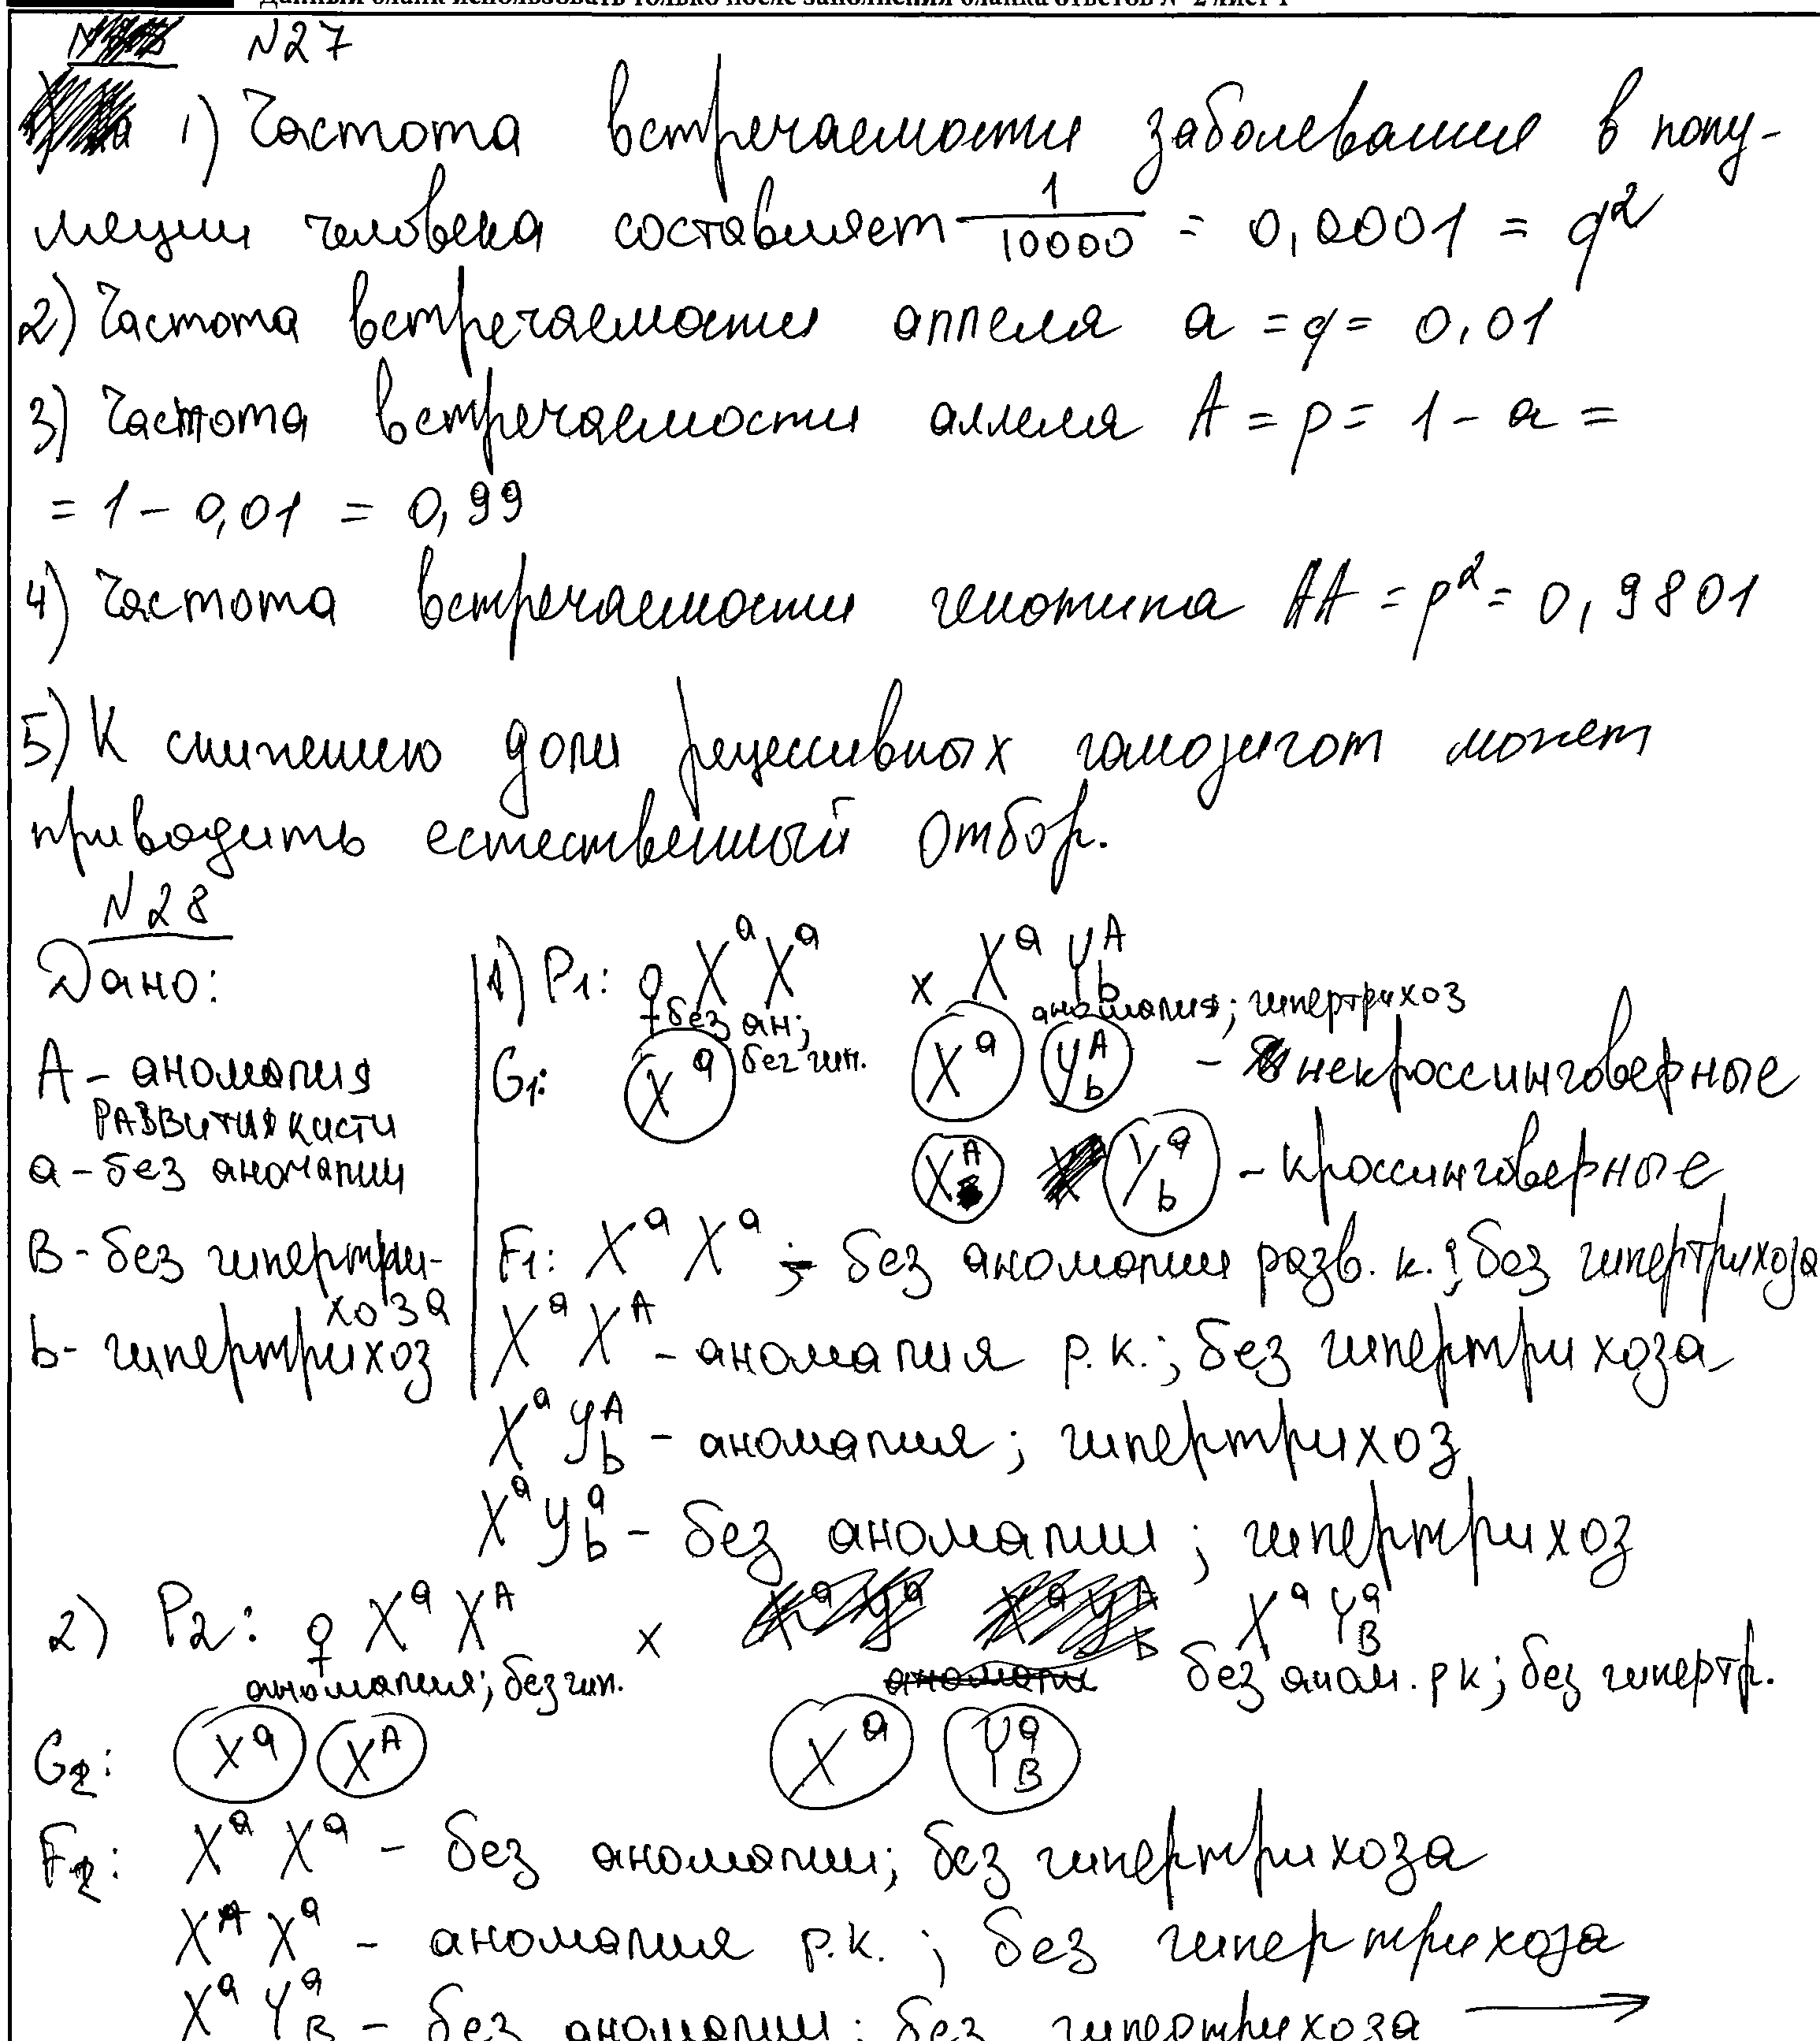 Данный бланк использовать только после заполнения бланка ответов № 2 лист 1
N27
1) Частота встречаемости заболевания в попу-
ляции человека составляет 1/10000 = 0,0001 = q²
2) Частота встречаемости аллеля a = q = 0,01
3) Частота встречаемости аллеля A = p = 1 - a =
= 1 - 0,01 = 0,99
4) Частота встречаемости генотипа AA = p² = 0,9801
5) К снижению доли рецессивных гомозигот может
приводить естественный отбор.
N28
Дано:
A - аномалия
развития кисти
a - без аномалии
B - без гипертри-
хоза
b - гипертрихоз
1) P1: ♀ XᵃXᵃ x XᵃY_b^A
без ан; без гип. аномалия; гипертрихоз
G1: Xᵃ Xᵃ Y_b^A - некроссинговерные
X^A Y_b^a - кроссинговерные
F1: XᵃXᵃ - без аномалии разв. к.; без гипертрихоза
XᵃX^A - аномалия р.к.; без гипертрихоза
XᵃY_b^A - аномалия; гипертрихоз
XᵃY_b^a - без аномалии; гипертрихоз
2) P2: ♀ XᵃX^A x XᵃY_B^a
аномалия; без гип. без аном. рк; без гипертр.
G2: Xᵃ X^A Xᵃ Y_B^a
F2: XᵃXᵃ - без аномалии; без гипертрихоза
X^AXᵃ - аномалия р.к.; без гипертрихоза
XᵃY_B^a - без аномалии; без гипертрихоза →